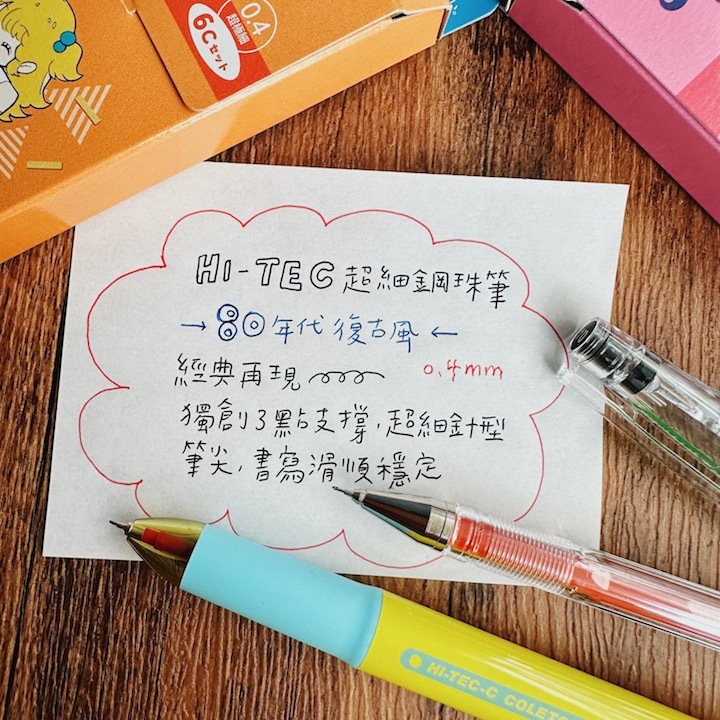 0.4
超極細
6Cセット
HI-TEC 超細鋼珠筆
→ 80年代 復古風 ←
經典再現 0.4mm
獨創3點支撐,超細針型
筆尖,書寫滑順穩定
HI-TEC-C COLETO